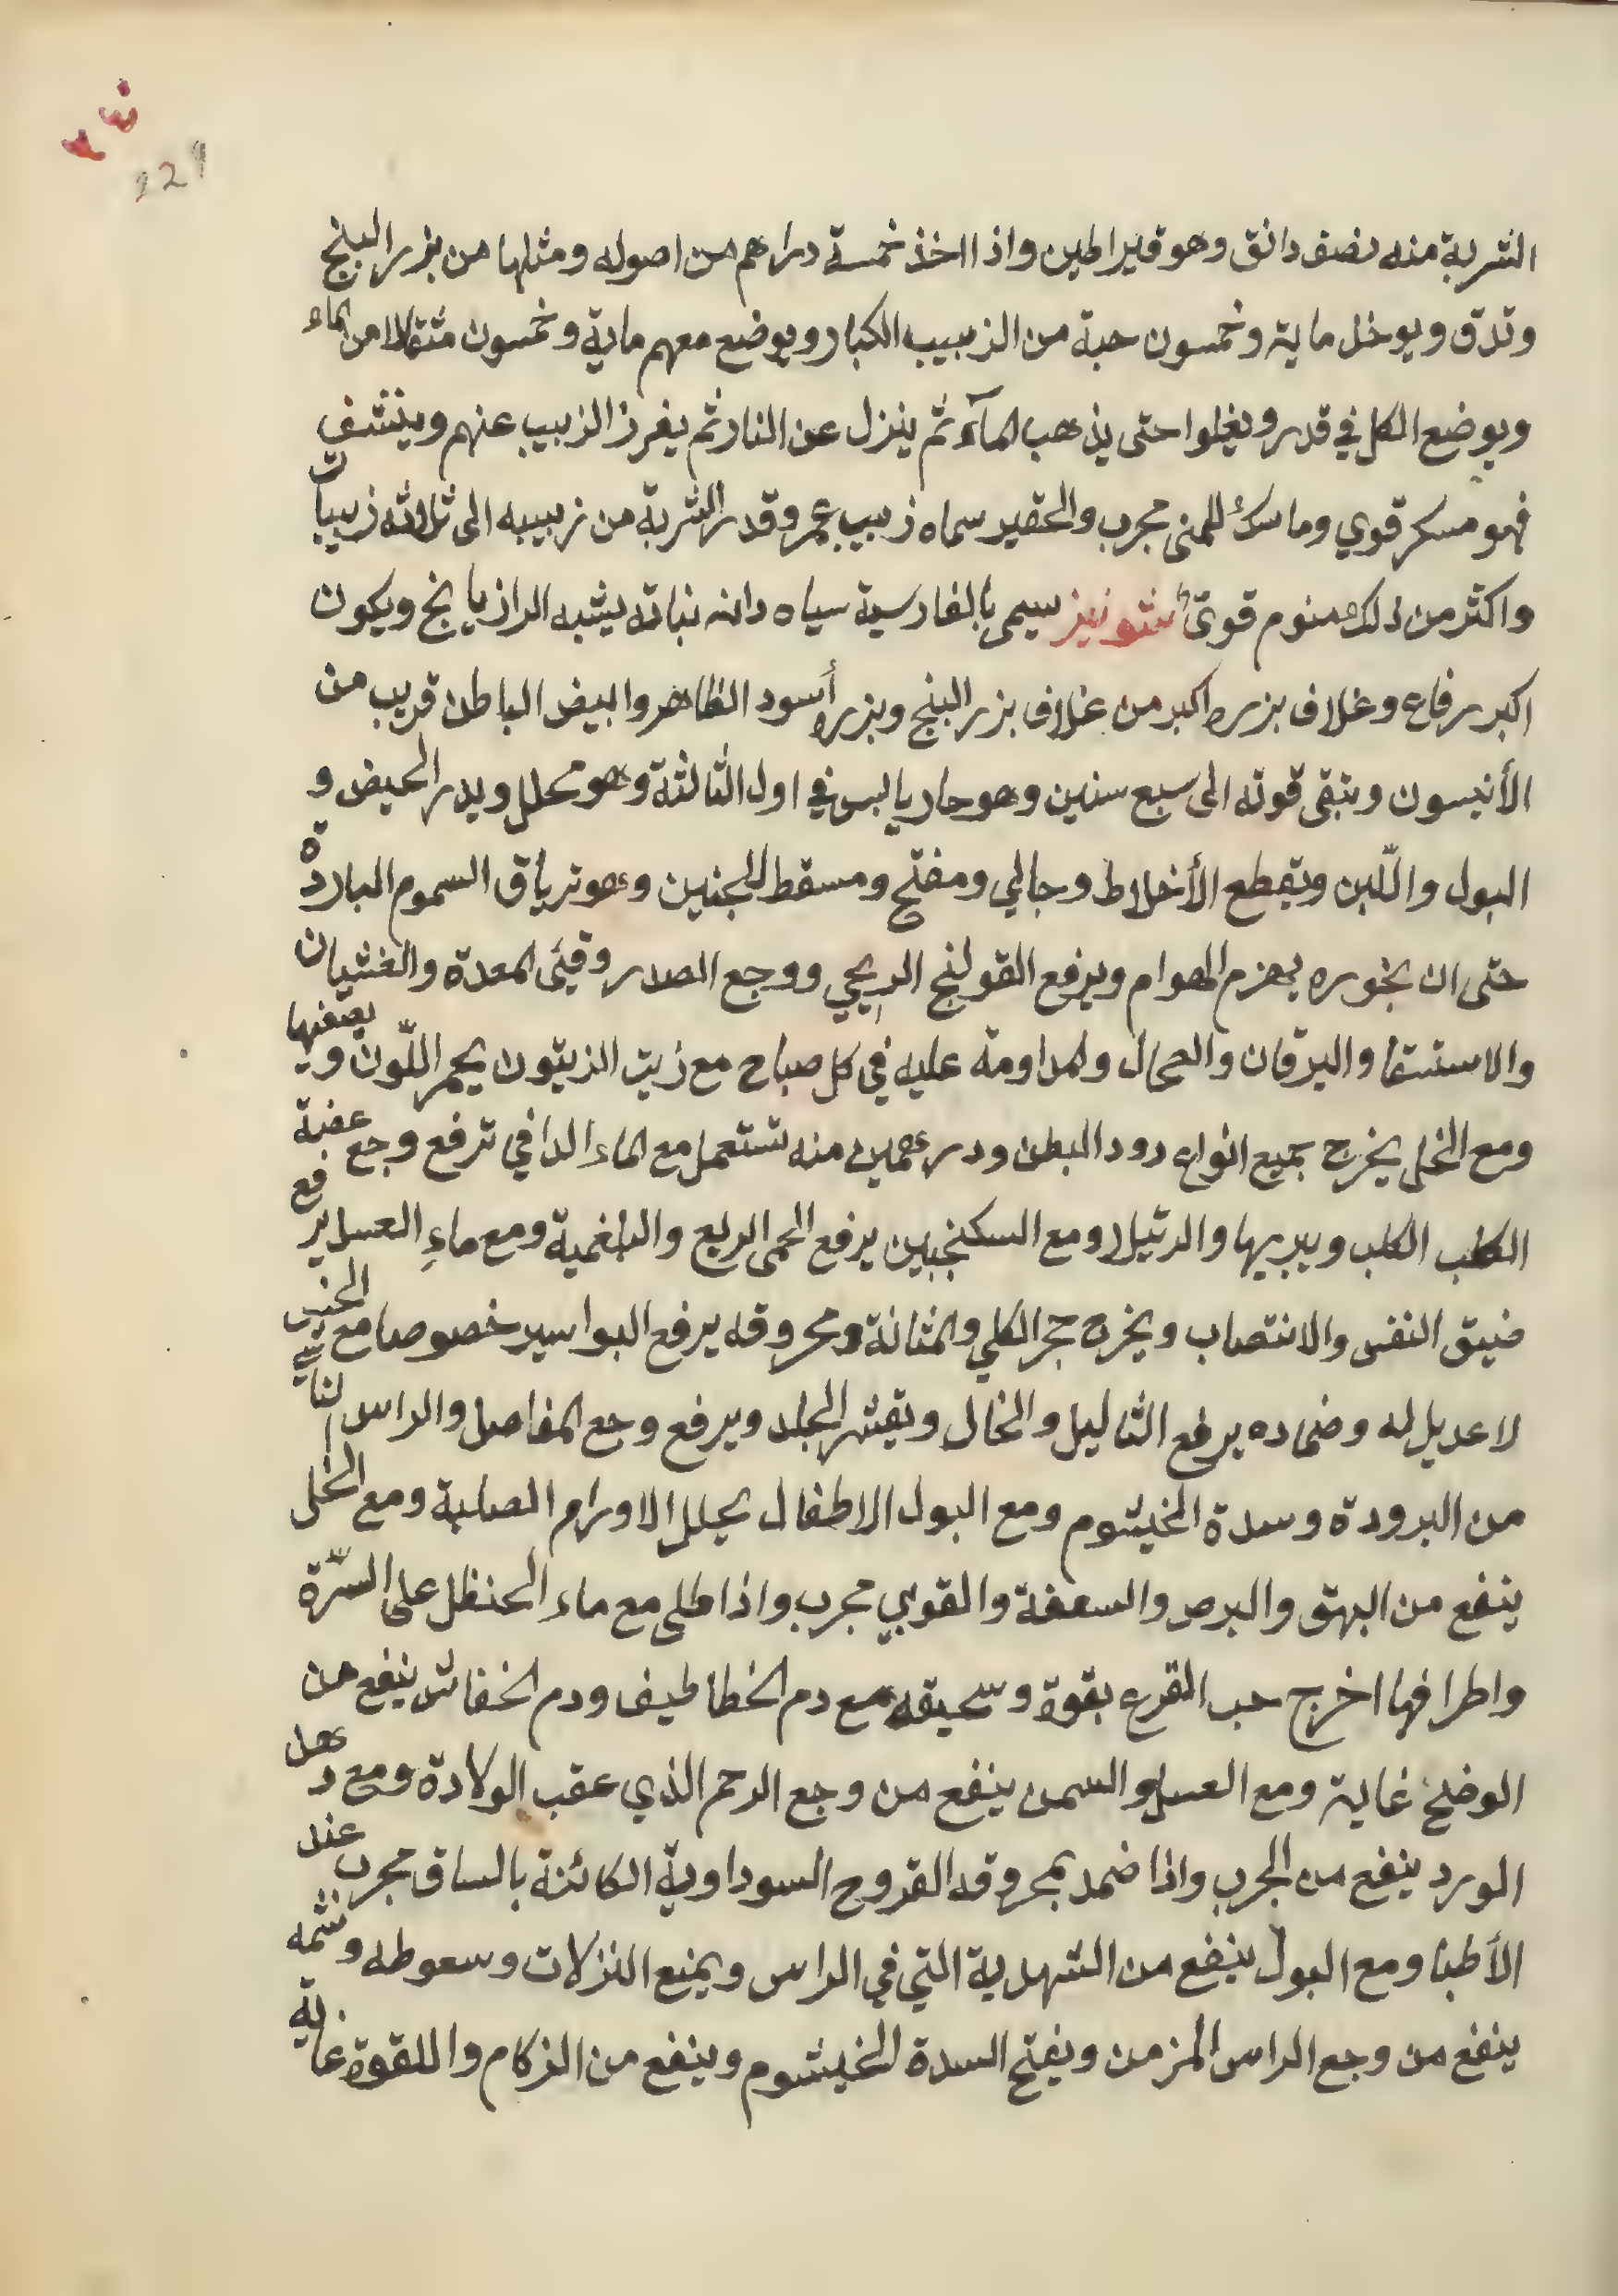 شن
229
الشربة منه نصف دانق وهو قيراطين واذا اخذ خمسة دراهم من اصوله ومثلها من بزر البنج
وتدق ويوخل ماية وخمسون حبة من الزبيب الكبار ويوضع معهم ماية وخمسون مثقالا من الماء
ويوضع الكل في قدر ويغلوا حتى يذهب المآء ثم ينزل عن النار ثم يفرز الزبيب عنهم وينشف
فهو مسكر قوي وماسك للمني مجرب والحقير سماه زبيب عمر وقدر الشربة من زبيبه الى ثلاثه زبيبات
واكثر من ذلك منوم قوى شونيز سيمى بالفارسية سياه دانه نباته يشبه الرازيانج ويكون
اكبر رفاع وغلاف بزره اكبر من غلاف بزر البنج وبزره أسود الظاهر وابيض الباطن قريب من
الأنيسون وتبقى قوته الى سبع سنين وهو حار يابس في اول الثالثة وهو محلل ويدر الحيض و
البول واللّبن ويقطع الأخلاط وجالي ومفتح ومسقط للجنين وهو ترياق السموم الباردة
حتى ان بخوره يهزم الهوام ويرفع القولنج الريحي ووجع الصدر وقيئ المعدة والغشيان
والاستسقا واليرقان والطحال والمداومة عليه في كل صباح مع زيت الزيتون يحمر اللّون ويصفيها
ومع الخل يخرج جميع انواع دود البطن ودرهمين منه تستعمل مع الماء الدافي ترفع وجع عضة
الكلب الكلب ويبريها والرتيلا ومع السكنجبين يرفع الحمى الربع والبلغمية ومع ماءِ العسل يرفع
ضيق النفس والانتصاب ويخرج حجر الكلي والمثانة ومحروقه يرفع البواسير خصوصا مع
لا عديل له وضماده يرفع الثاليل والخال ويقشر الجلد ويرفع وجع المفاصل والراس
من البرودة وسدة الخيشوم ومع البول الاطفال يحلل الاورام الصلبة ومع الخل
ينفع من البهق والبرص والسعفة والقوبي مجرب واذا طلى مع ماء الحنظل على السّرة
واطرافها اخرج حب القرع بقوة وسحيقه مع دم الخطاطيف ودم الخفاش ينفع من
الوضح غاية ومع العسل والسمن ينفع من وجع الرحم الذي عقب الولادة ومع دهن
الورد ينفع من الجرب واذا ضمد بمحروقه القروح السوداوية الكائنة بالساق مجرب عند
الأطبا ومع البول ينفع من الشهدية التي في الراس ويمنع النزلات وسعوطه وشمه
ينفع من وجع الراس المزمن ويفتح السدة الخيشوم وينفع من الزكام واللقوة غاية